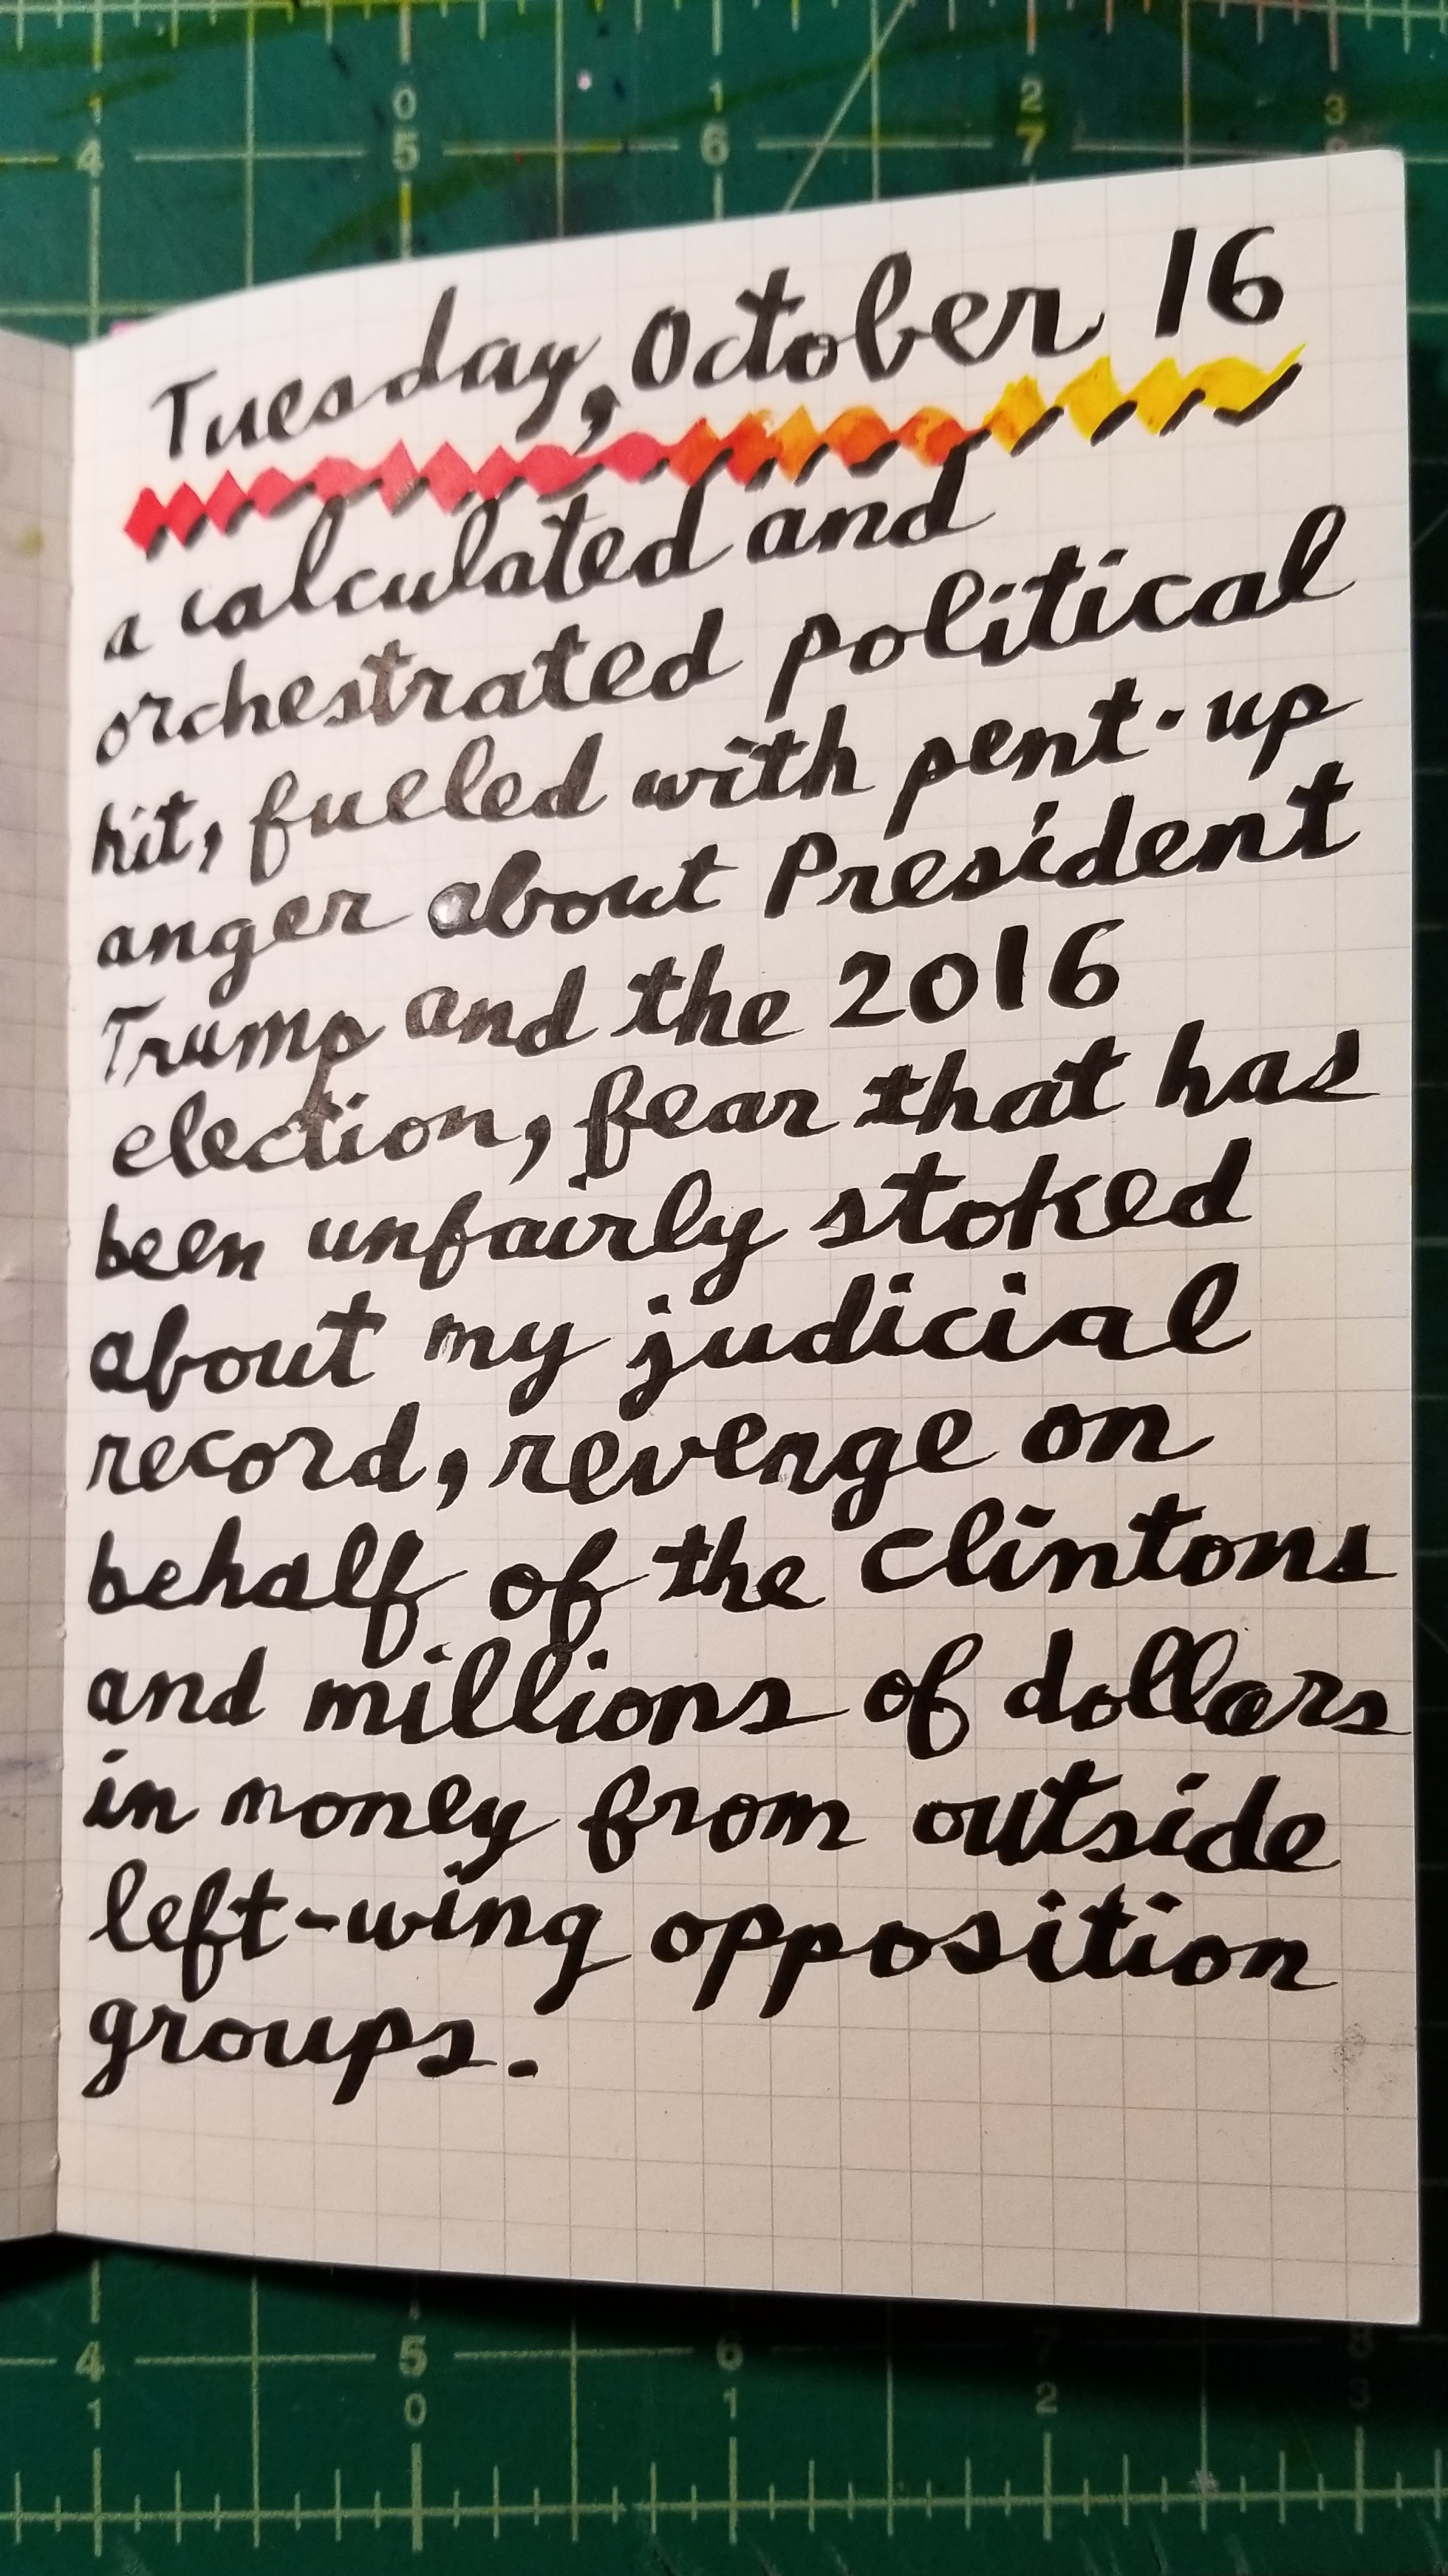 0 1 2 3
4 5 6 7
Tuesday, October 16
a calculated and
orchestrated political
hit, fueled with pent-up
anger about President
Trump and the 2016
election, fear that has
been unfairly stoked
about my judicial
record, revenge on
behalf of the Clintons
and millions of dollars
in money from outside
left-wing opposition
groups.
4 5 6 7 8
1 0 1 2 3